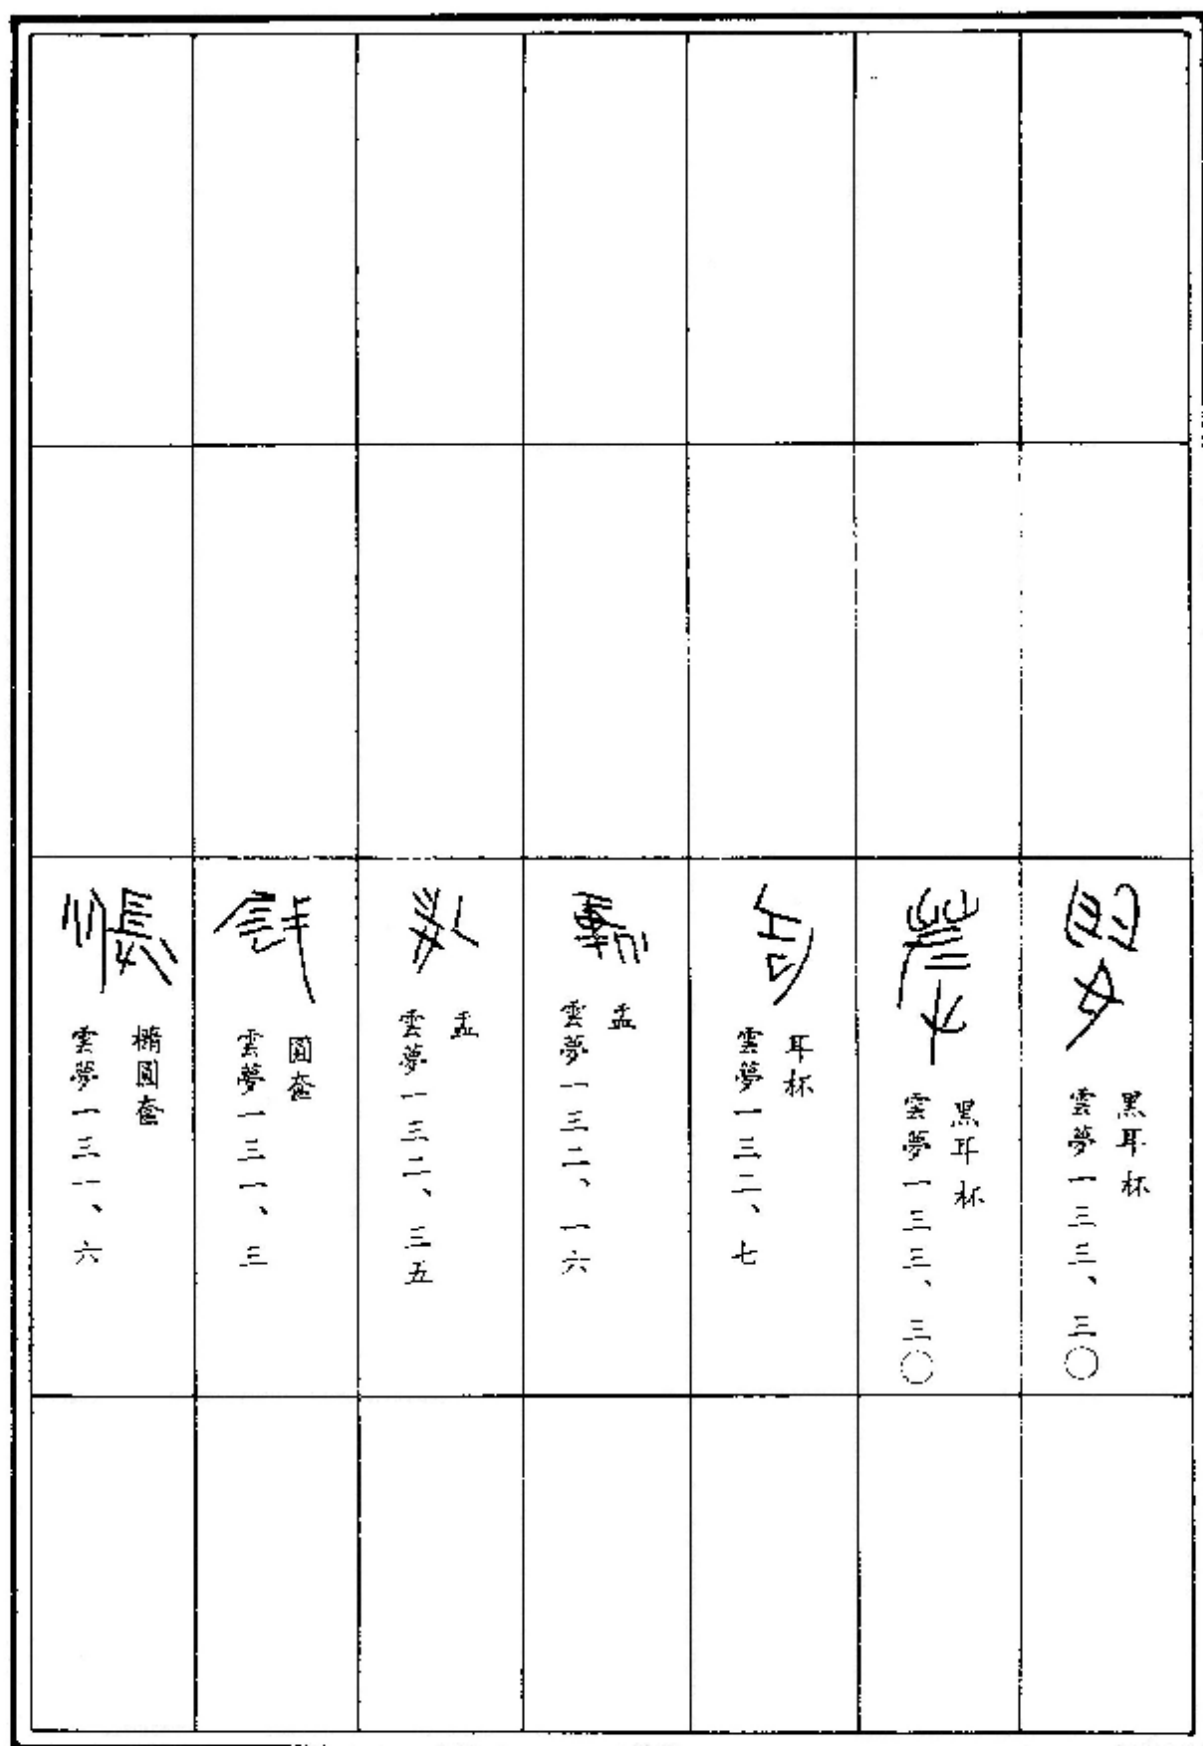 黑耳杯
雲夢一三三、三〇
黑耳杯
雲夢一三三、三〇
耳杯
雲夢一三二、七
盂
雲夢一三二、一六
盂
雲夢一三二、三五
圓奩
雲夢一三一、三
橢圓奩
雲夢一三一、六